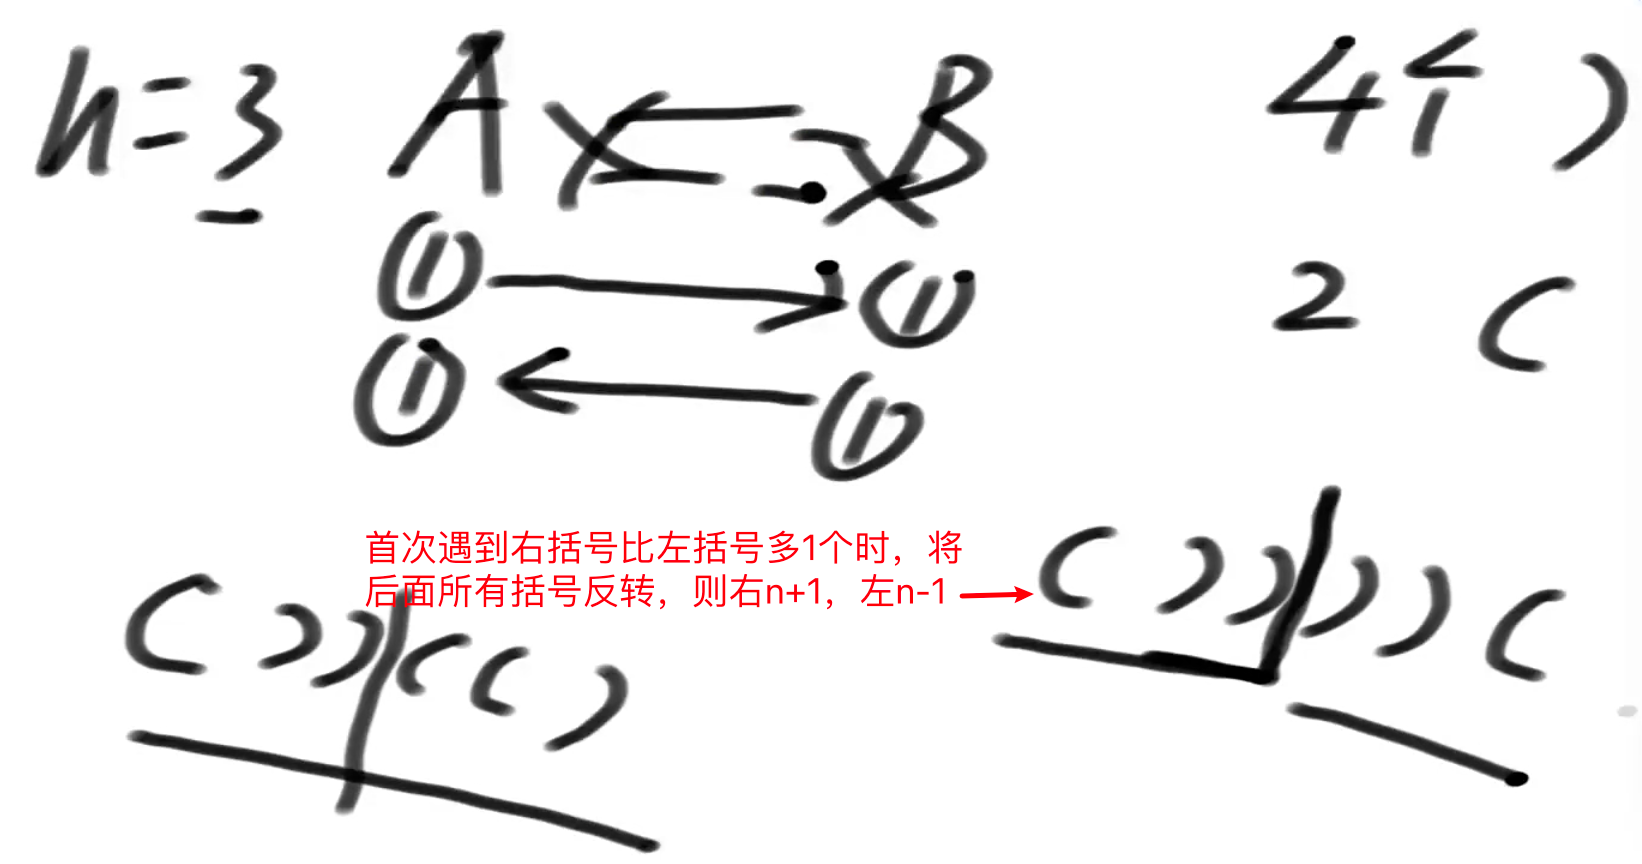 n=3 A B 4个 )
① ①
2 (
① ①
首次遇到右括号比左括号多1个时，将
后面所有括号反转，则右n+1，左n-1
( ) ) ) ) (
( ) ) ( ( )